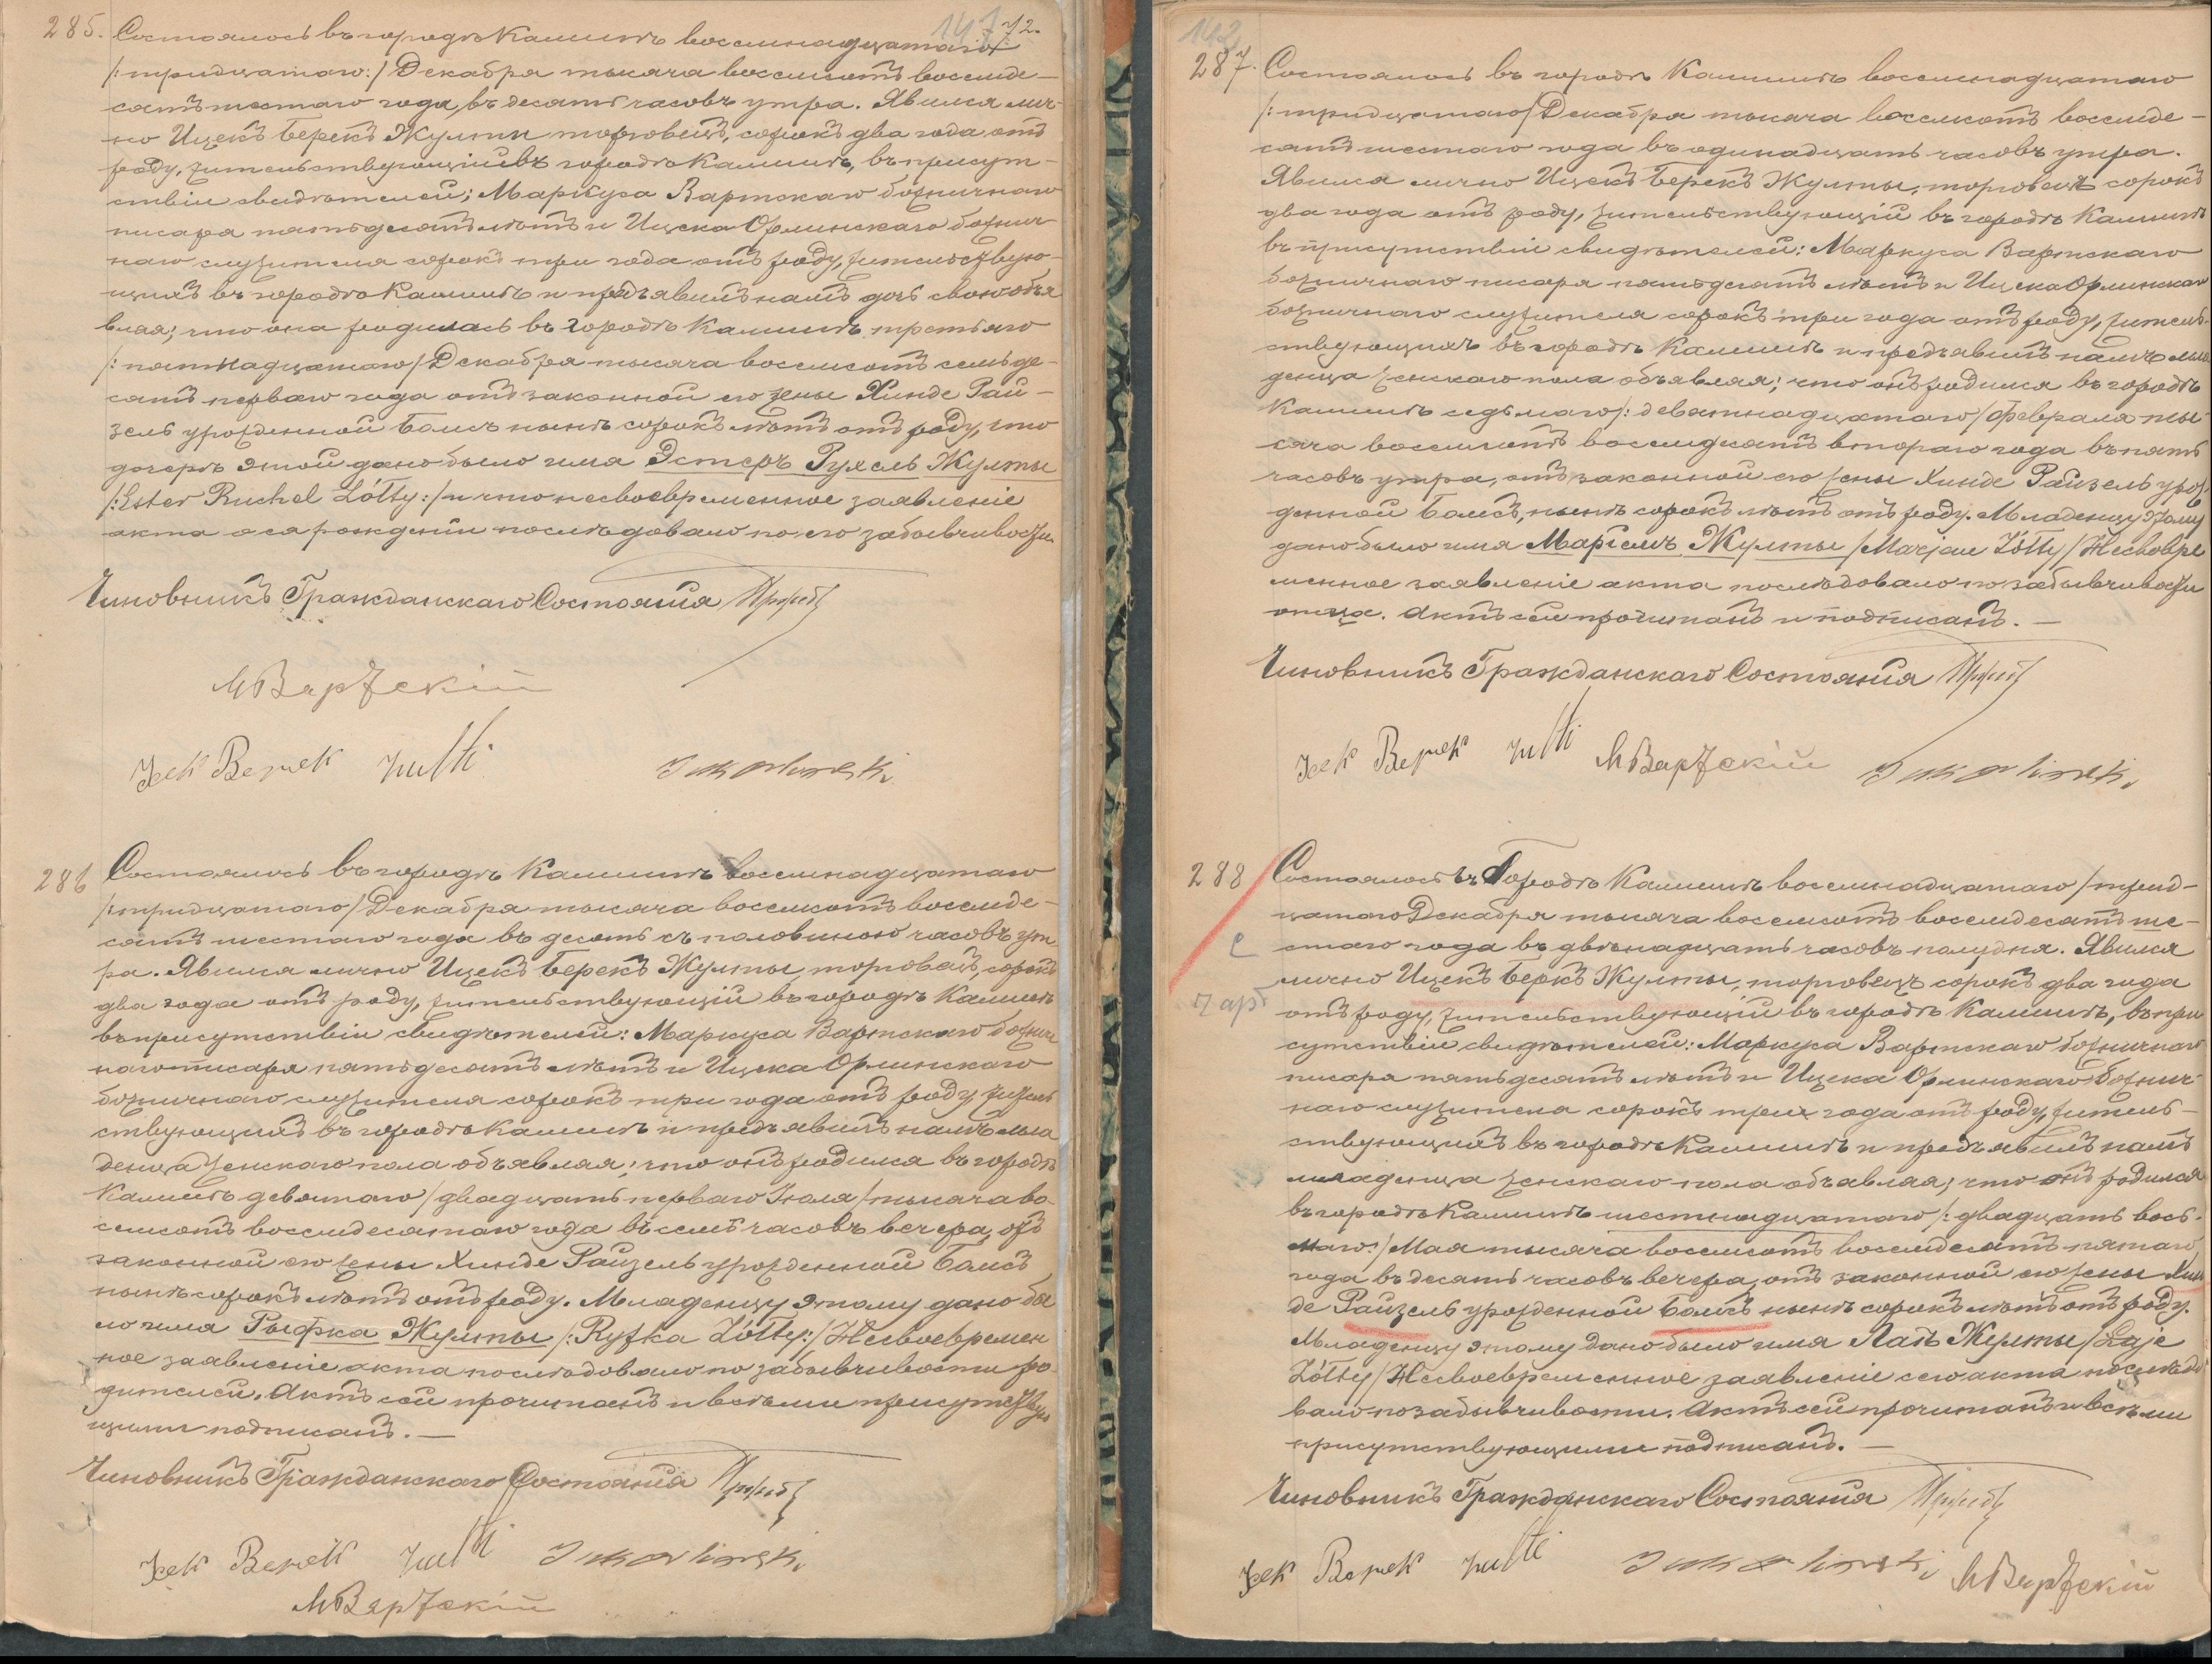 147 72.
285. Состоялось въ городѣ Калишѣ восемнадцатаго
/:тридцатаго:/ Декабря тысяча восемьсотъ восемьде-
сятъ шестаго года, въ десять часовъ утра. Явился лич-
но Ицекъ Берекъ Жулты торговецъ, сорокъ два года отъ
роду, жительствующій въ городѣ Калишѣ, въ присут-
ствіи свидѣтелей; Маркуса Вартскаго божничнаго
писаря пятьдесятъ лѣтъ и Ицека Орлинскаго божнич-
наго служителя сорокъ три года отъ роду, жительствую-
щихъ въ городѣ Калишѣ и предъявилъ намъ дочь свою объя
вляя; что она родилась въ городѣ Калишѣ третьяго
/:пятнадцатаго/ Декабря тысяча восемьсотъ семьде-
сятъ перваго года отъ законной его жены Хинде Рай-
зель урожденной Бамсъ нынѣ сорокъ лѣтъ отъ роду, что
дочерѣ этой дано было имя Эстеръ Рухель Жулты
/:Ester Ruchel Żółty:/ и что несвоевременное заявленіе
акта о ея рожденіи послѣдовало по его забывчивости
Чиновникъ Гражданскаго Состоянія
МВартскій
Icek Berek Żulti
286 Состоялось въ городѣ Калишѣ восемнадцатаго
/:тридцатаго/ Декабря тысяча восемьсотъ восемьде-
сятъ шестаго года въ десять съ половиною часовъ ут
ра. Явился лично Ицекъ Берекъ Жулты, торговецъ, сорокъ
два года отъ роду, жительствующій въ городѣ Калишѣ
въ присутствіи свидѣтелей: Маркуса Вартскаго божнич
наго писаря пятьдесятъ лѣтъ и Ицека Орлинскаго
божничнаго служителя сорокъ три года отъ роду, житель
ствующихъ въ городѣ Калишѣ и предъявилъ намъ мла
денца женскаго пола объявляя; что онъ родился въ городѣ
Калишѣ девятаго /двадцать перваго Іюля/ тысяча во-
семьсотъ восемьдесятаго года въ семь часовъ вечера, отъ
законной его жены Хинде Райзель урожденной Бамсъ
нынѣ сорокъ лѣтъ отъ роду. Младенцу этому дано бы
ло имя Рыфка Жулты /:Ryfka Żółty:/ Несвоевремен
ное заявленіе акта послѣдовало по забывчивости ро-
дителей. Актъ сей прочитанъ и всѣми присутствую
щими подписанъ.
Чиновникъ Гражданскаго Состоянія
Icek Berek Żulti
МВартскій
142
287. Состоялось въ городѣ Калишѣ восемнадцатаго
/:тридцатаго/ Декабря тысяча восемьсотъ восемьде-
сятъ шестаго года въ одинадцать часовъ утра.
Явился лично Ицекъ Берекъ Жулты, торговецъ сорокъ
два года отъ роду, жительствующій въ городѣ Калишѣ
въ присутствіи свидѣтелей: Маркуса Вартскаго
божничнаго писаря пятьдесятъ лѣтъ и Ицека Орлинскаго
божничнаго служителя сорокъ три года отъ роду, житель-
ствующихъ въ городѣ Калишѣ и предъявилъ намъ мла
денца женскаго пола объявляя; что онъ родился въ городѣ
Калишѣ седьмаго /:девятнадцатаго/ Февраля ты-
сяча восемьсотъ восемьдесятъ втораго года въ пять
часовъ утра, отъ законной его жены Хинде Райзель урож-
денной Бамсъ, нынѣ сорокъ лѣтъ отъ роду. Младенцу этому
дано было имя Маріемъ Жулты /Marjem Żółty/ Несвоевре
менное заявленіе акта послѣдовало по забывчивости
отца. Актъ сей прочитанъ и подписанъ.
Чиновникъ Гражданскаго Состоянія
Icek Berek Żulti МВартскій
288 Состоялось въ Городѣ Калишѣ восемнадцатаго /трид-
цатаго Декабря тысяча восемьсотъ восемьдесятъ ше-
стаго года въ двѣнадцать часовъ полудня. Явился
лично Ицекъ Беркъ Жулты, торговецъ сорокъ два года
отъ роду, жительствующій въ городѣ Калишѣ, въ при
сутствіи свидѣтелей: Маркуса Вартскаго божничнаго
писаря пятьдесятъ лѣтъ и Ицека Орлинскаго божнич-
наго служителя сорокъ три года отъ роду, житель-
ствующихъ въ городѣ Калишѣ и предъявилъ намъ
младенца женскаго пола объявляя; что онъ родился
въ городѣ Калишѣ шестнадцатаго /:двадцать вось-
маго:/ Мая тысяча восемьсотъ восемьдесятъ пятаго
года въ десять часовъ вечера, отъ законной его жены Хин
де Райзель урожденной Бамсъ нынѣ сорокъ лѣтъ отъ роду.
Младенцу этому дано было имя Лаѣ Жулты /Łaje
Żółty/ Несвоевременное заявленіе сего акта послѣдо
вало по забывчивости. Актъ сей прочитанъ и всѣми
присутствующими подписанъ.
Чиновникъ Гражданскаго Состоянія
Icek Berek Żulti МВартскій